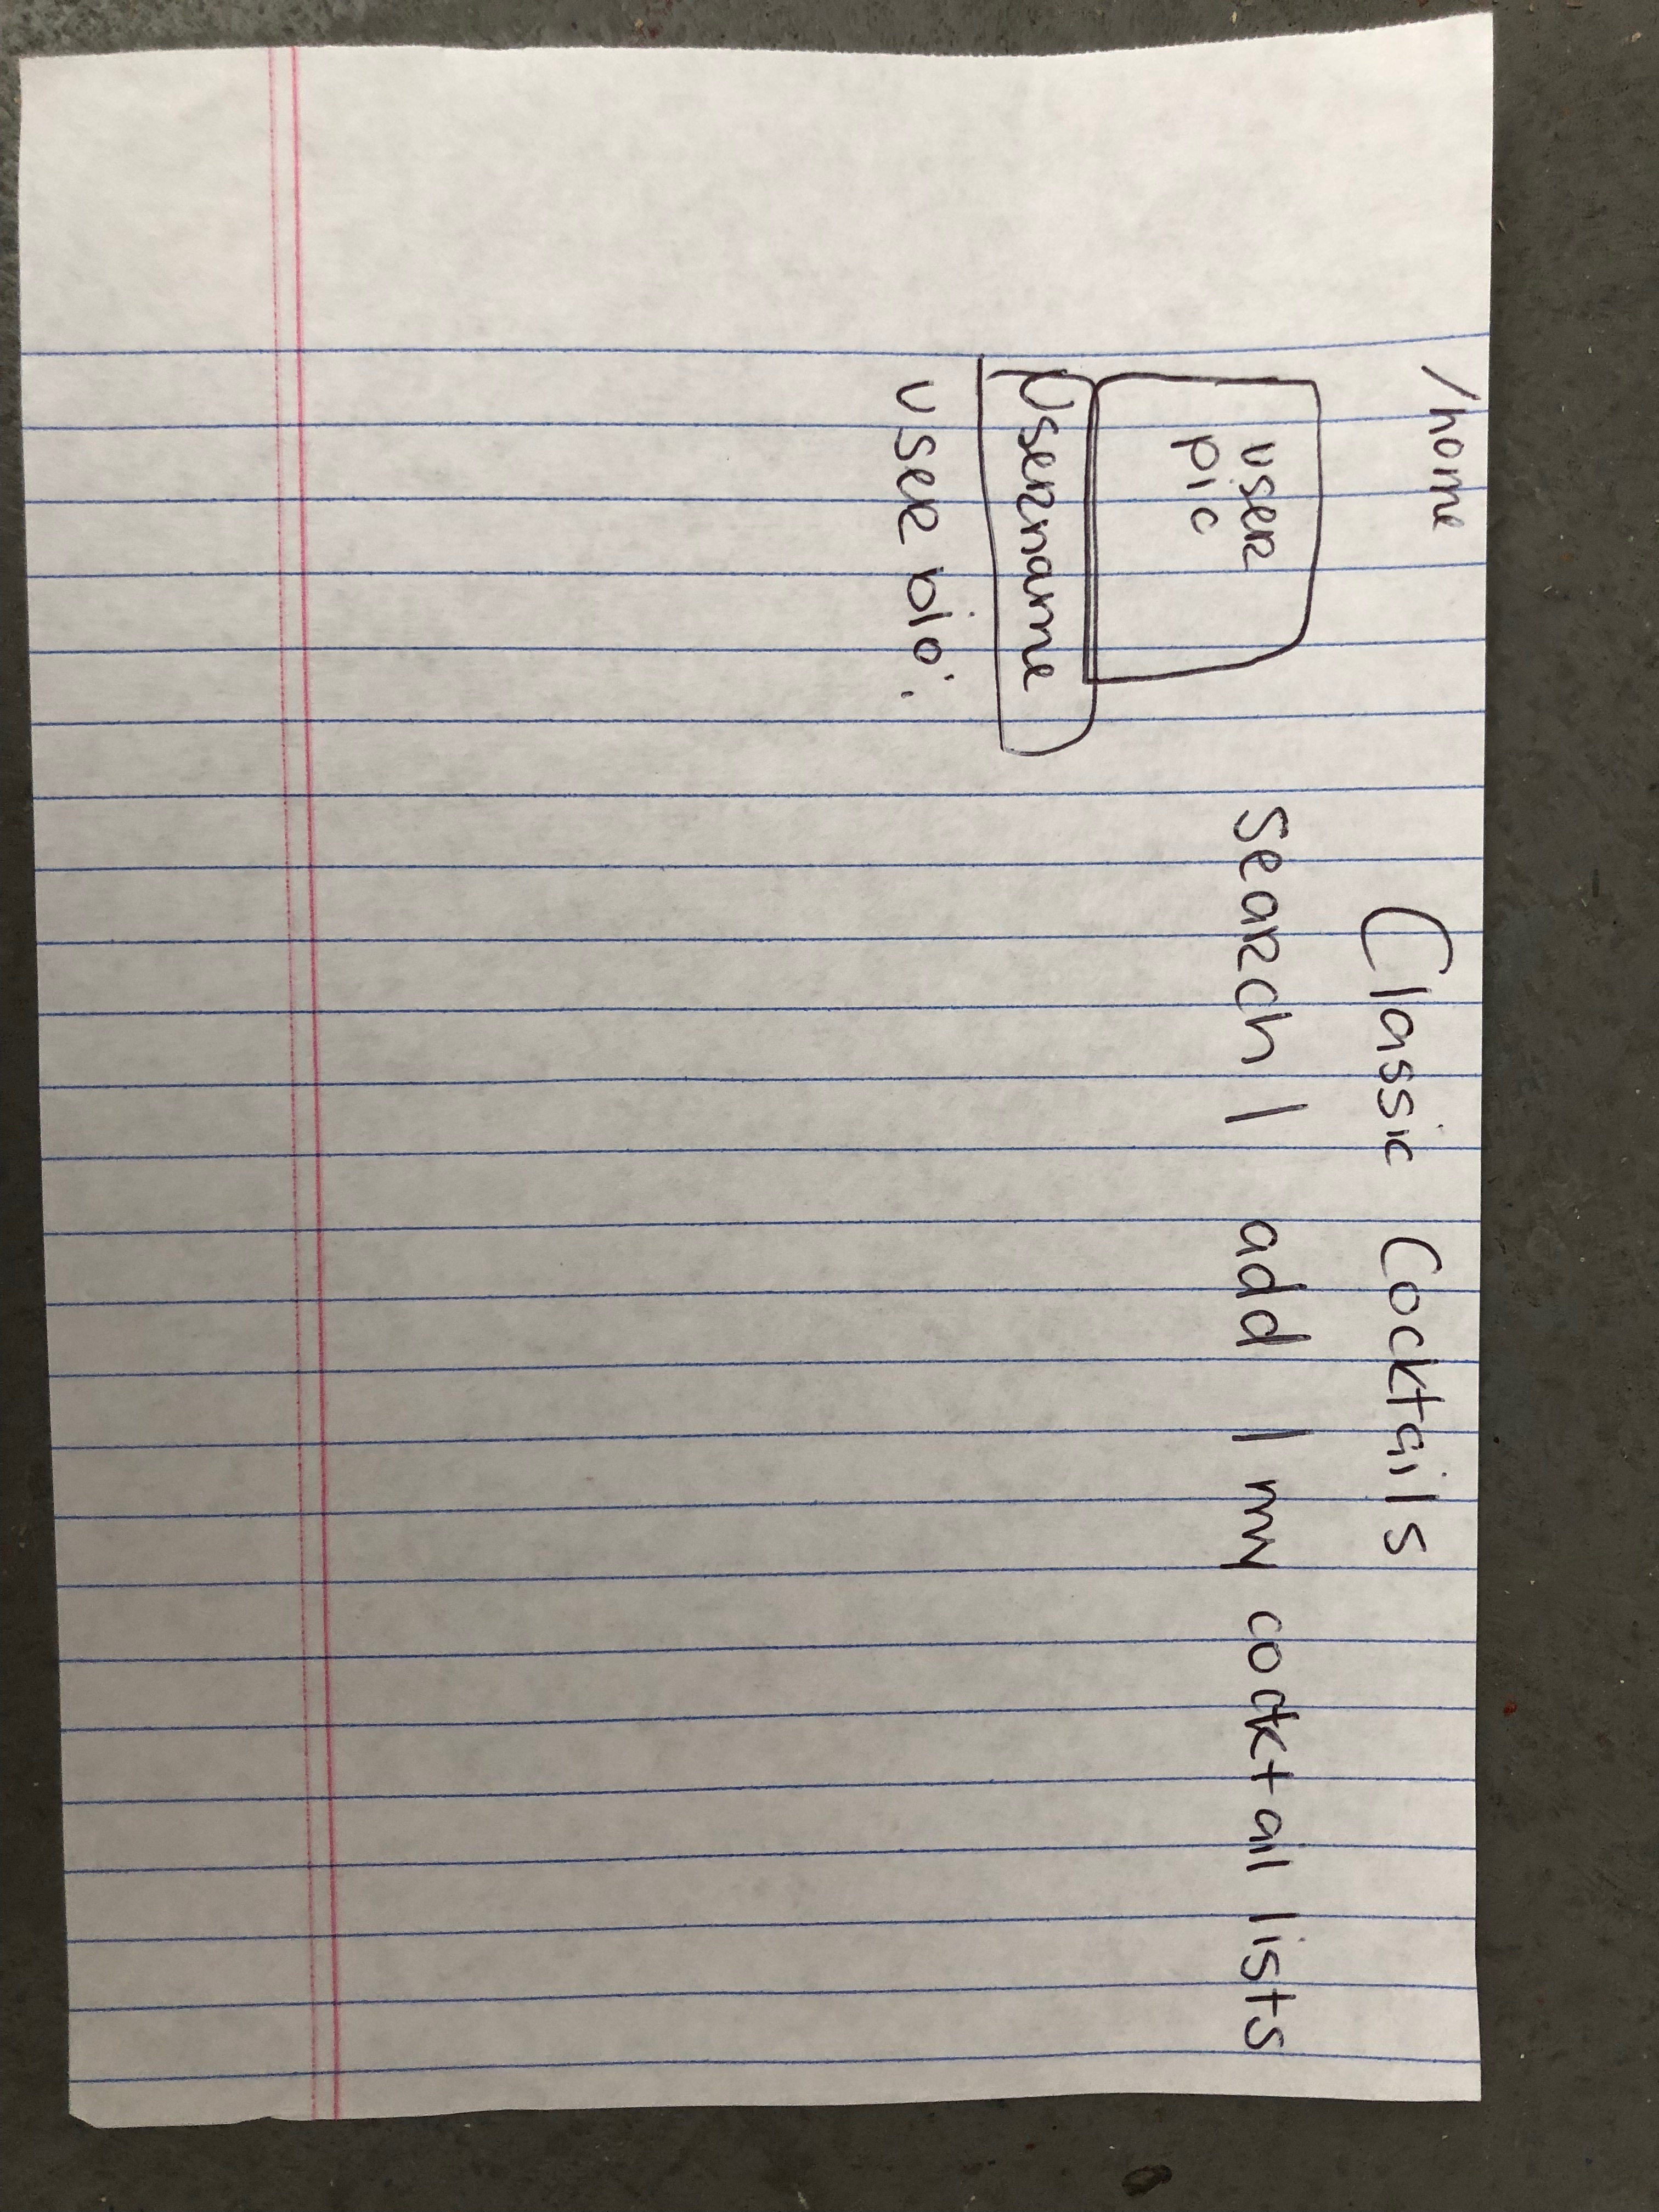 /home
Classic Cocktails
search | add | my cocktail lists
user
pic
Username
user bio: